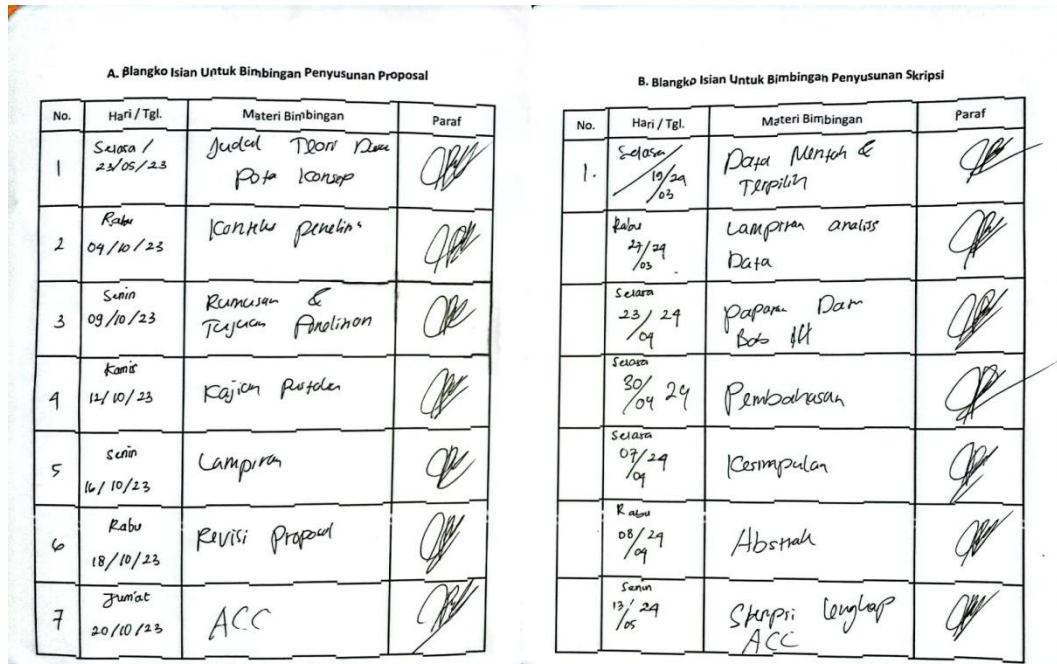 A. Blangko Isian Untuk Bimbingan Penyusunan Proposal
No. Hari / Tgl. Materi Bimbingan Paraf
1 Selasa / 23/05/23 Judul Teori Dan
Pota Konsep
2 Rabu 04/10/23 Konteks
3 Senin 09/10/23 Rumusan &
Tujuan Penelitian
4 Kamis 12/10/23 Kajian Pustaka
5 Senin 16/10/23 Lampiran
6 Rabu 18/10/23 Revisi Proposal
7 Jum'at 20/10/23 ACC
B. Blangko Isian Untuk Bimbingan Penyusunan Skripsi
No. Hari / Tgl. Materi Bimbingan Paraf
1. Selasa / 19/24/03 Data Mentah &
Terpilih
Rabu 27/24/03 Lampiran analisis
Data
Selasa 23/24/04 paparan Dan
Bab
Selasa 30/04 24 Pembahasan
Selasa 07/24/04 Kesimpulan
Rabu 08/24/04 Abstrak
Senin 13/24/05 Skripsi lengkap
ACC